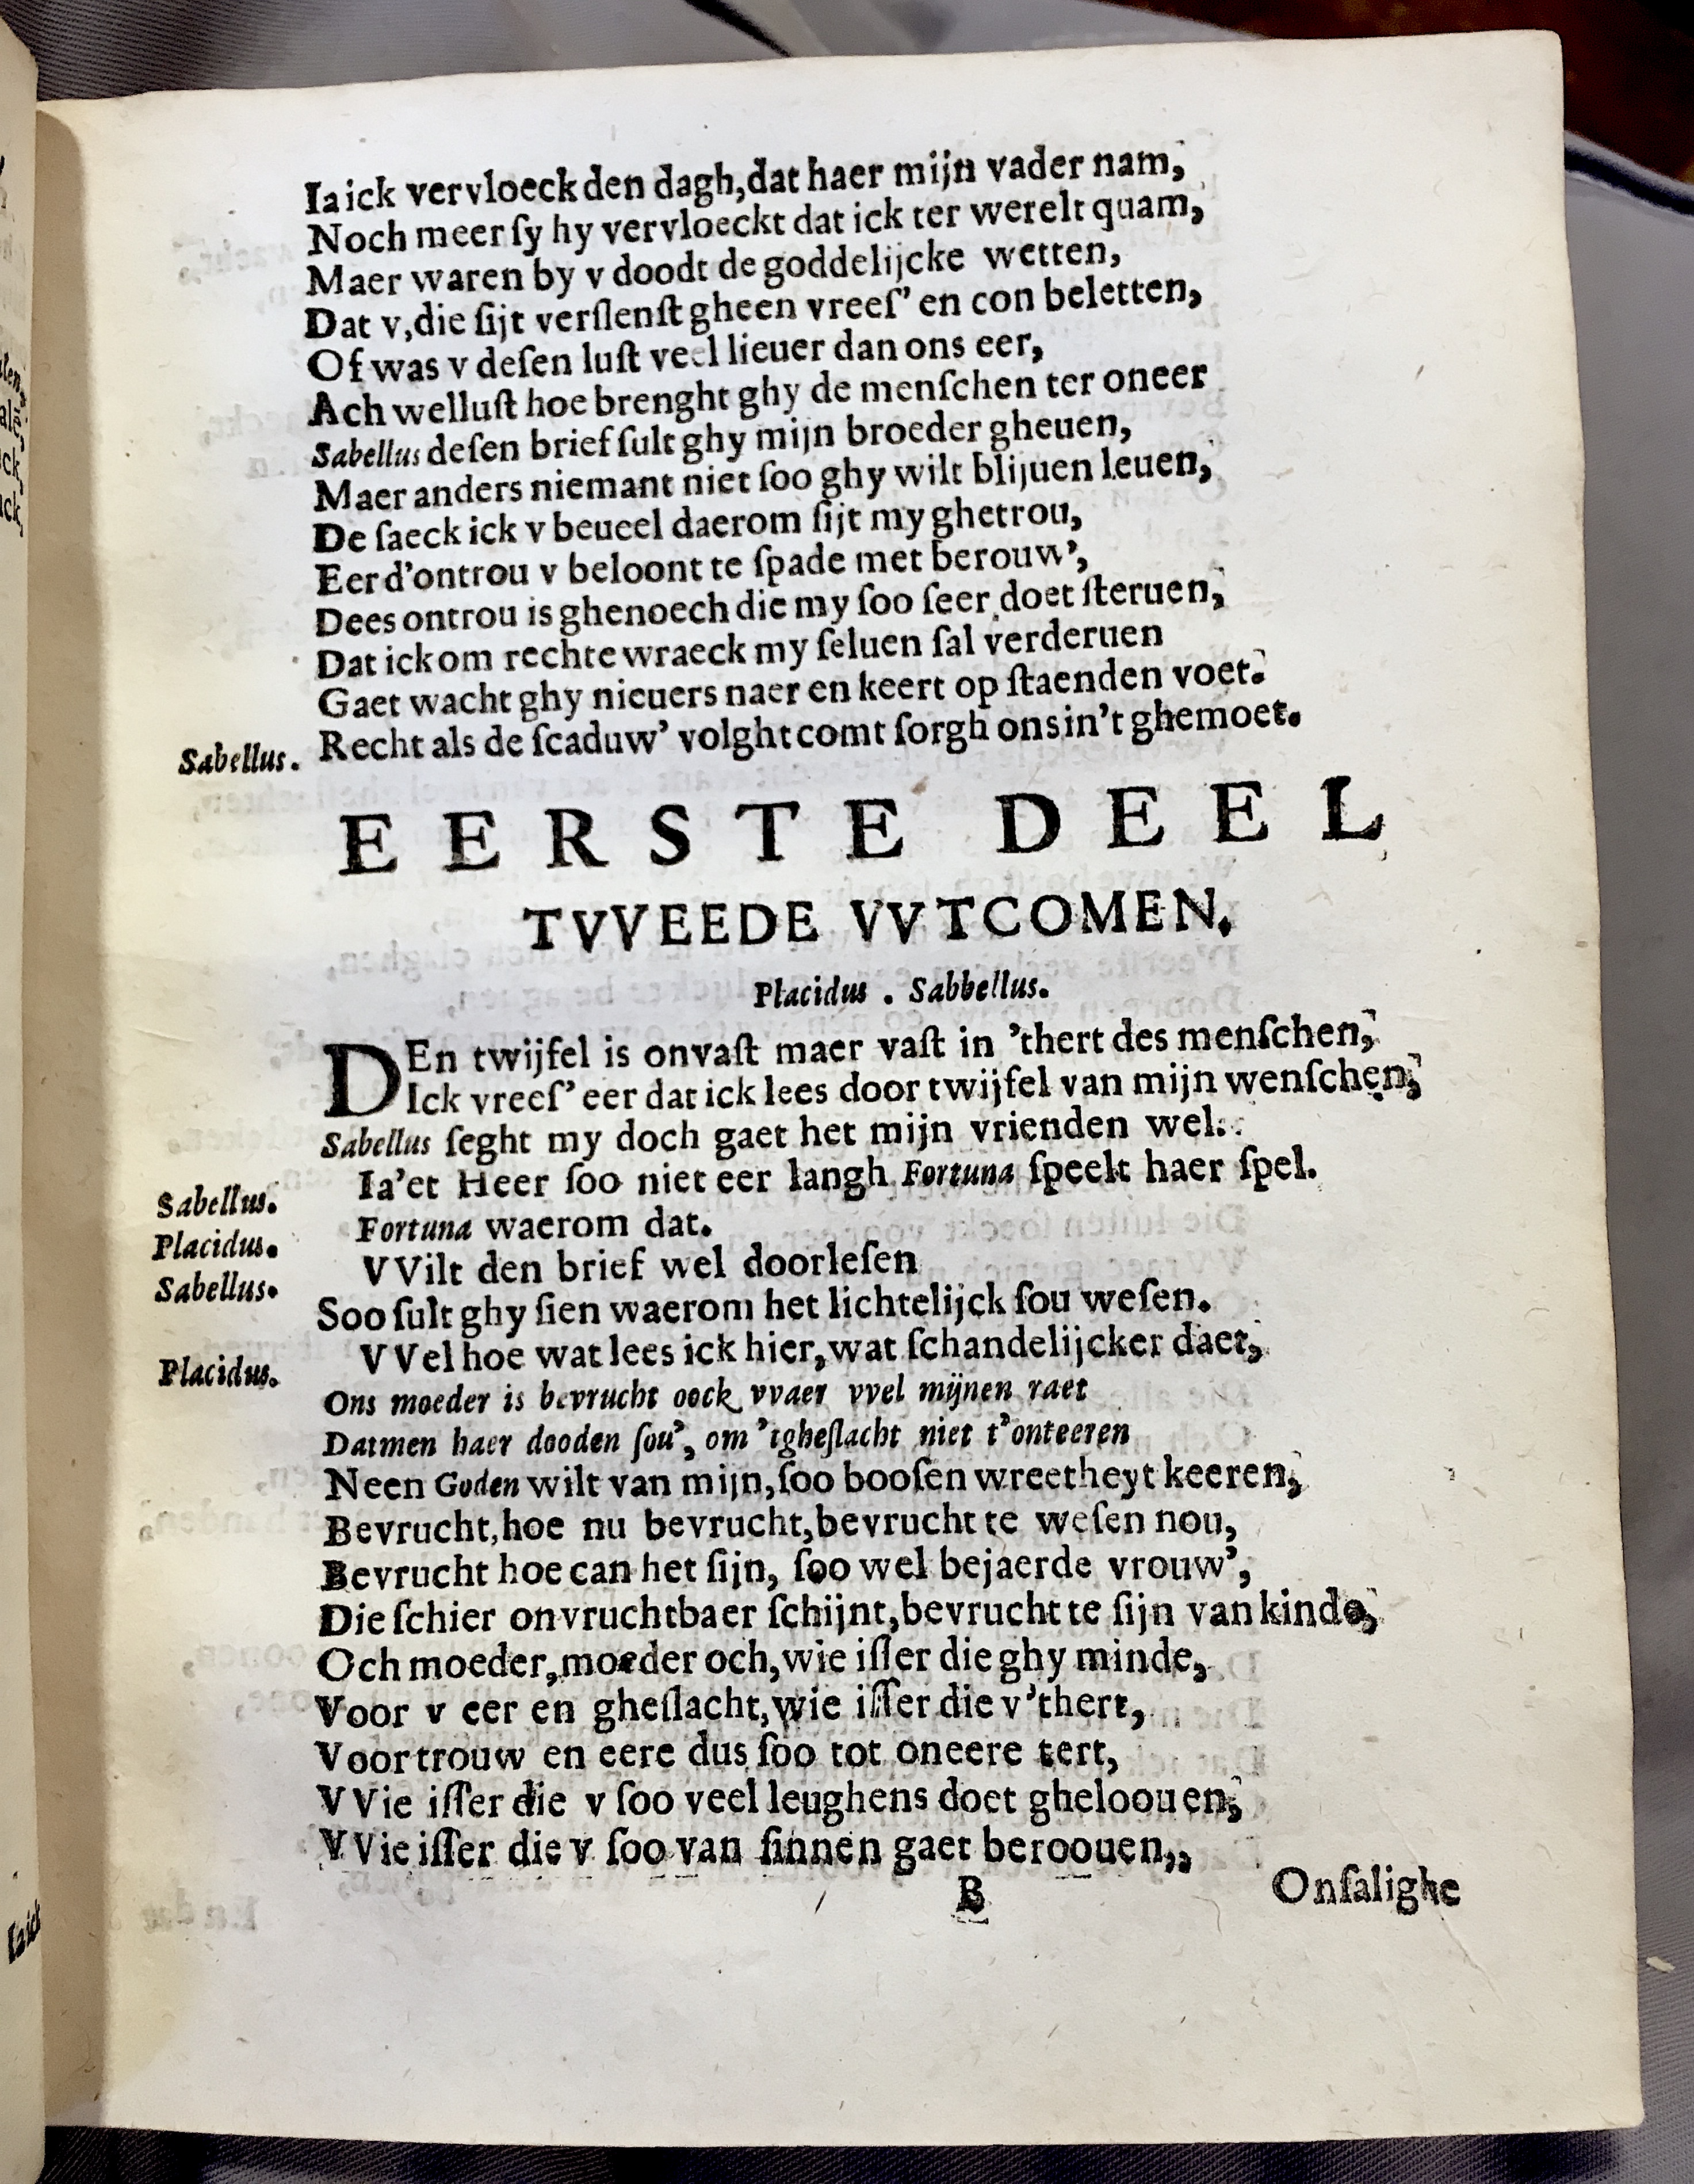 Ia ick vervloeck den dagh, dat haer mijn vader nam,
Noch meer ſy hy vervloeckt dat ick ter werelt quam,
Maer waren by v doodt de goddelijcke wetten,
Dat v, die ſijt verſlenſt gheen vreeſ' en con beletten,
Of was v deſen luſt veel lieuer dan ons eer,
Ach welluſt hoe brenght ghy de menſchen ter oneer
Sabellus deſen brief ſult ghy mijn broeder gheuen,
Maer anders niemant niet ſoo ghy wilt blijuen leuen,
De ſaeck ick v beueel daerom ſijt my ghetrou,
Eer d'ontrou v beloont te ſpade met berouw',
Dees ontrou is ghenoech die my ſoo ſeer doet ſteruen,
Dat ick om rechte wraeck my ſeluen ſal verderuen
Gaet wacht ghy nieuers naer en keert op ſtaenden voet.
Sabellus. Recht als de ſcaduw' volght comt ſorgh ons in't ghemoet.
EERSTE DEEL
TVVEEDE VVTCOMEN.
Placidus . Sabbellus.
DEn twijfel is onvaſt maer vaſt in 'thert des menſchen,
Ick vreeſ' eer dat ick lees door twijfel van mijn wenſchen,
Sabellus ſeght my doch gaet het mijn vrienden wel.
Sabellus. Ia'et Heer ſoo niet eer langh Fortuna ſpeelt haer ſpel.
Placidus. Fortuna waerom dat.
Sabellus. VVilt den brief wel doorleſen
Soo ſult ghy ſien waerom het lichtelijck ſou weſen.
Placidus. VVel hoe wat lees ick hier, wat ſchandelijcker daet,
Ons moeder is bevrucht oock vvaer vvel mijnen raet
Datmen haer dooden ſou', om 'tgheſlacht niet t'onteeren
Neen Goden wilt van mijn, ſoo booſen wreetheyt keeren,
Bevrucht, hoe nu bevrucht, bevrucht te weſen nou,
Bevrucht hoe can het ſijn, ſoo wel bejaerde vrouw',
Die ſchier onvruchtbaer ſchijnt, bevrucht te ſijn van kinde,
Och moeder, moeder och, wie iſſer die ghy minde,
Voor v eer en gheſlacht, wie iſſer die v 'thert,
Voor trouw en eere dus ſoo tot oneere tert,
VVie iſſer die v ſoo veel leughens doet gheloouen,
VVie iſſer die v ſoo van ſinnen gaet beroouen,,
B Onſalighe